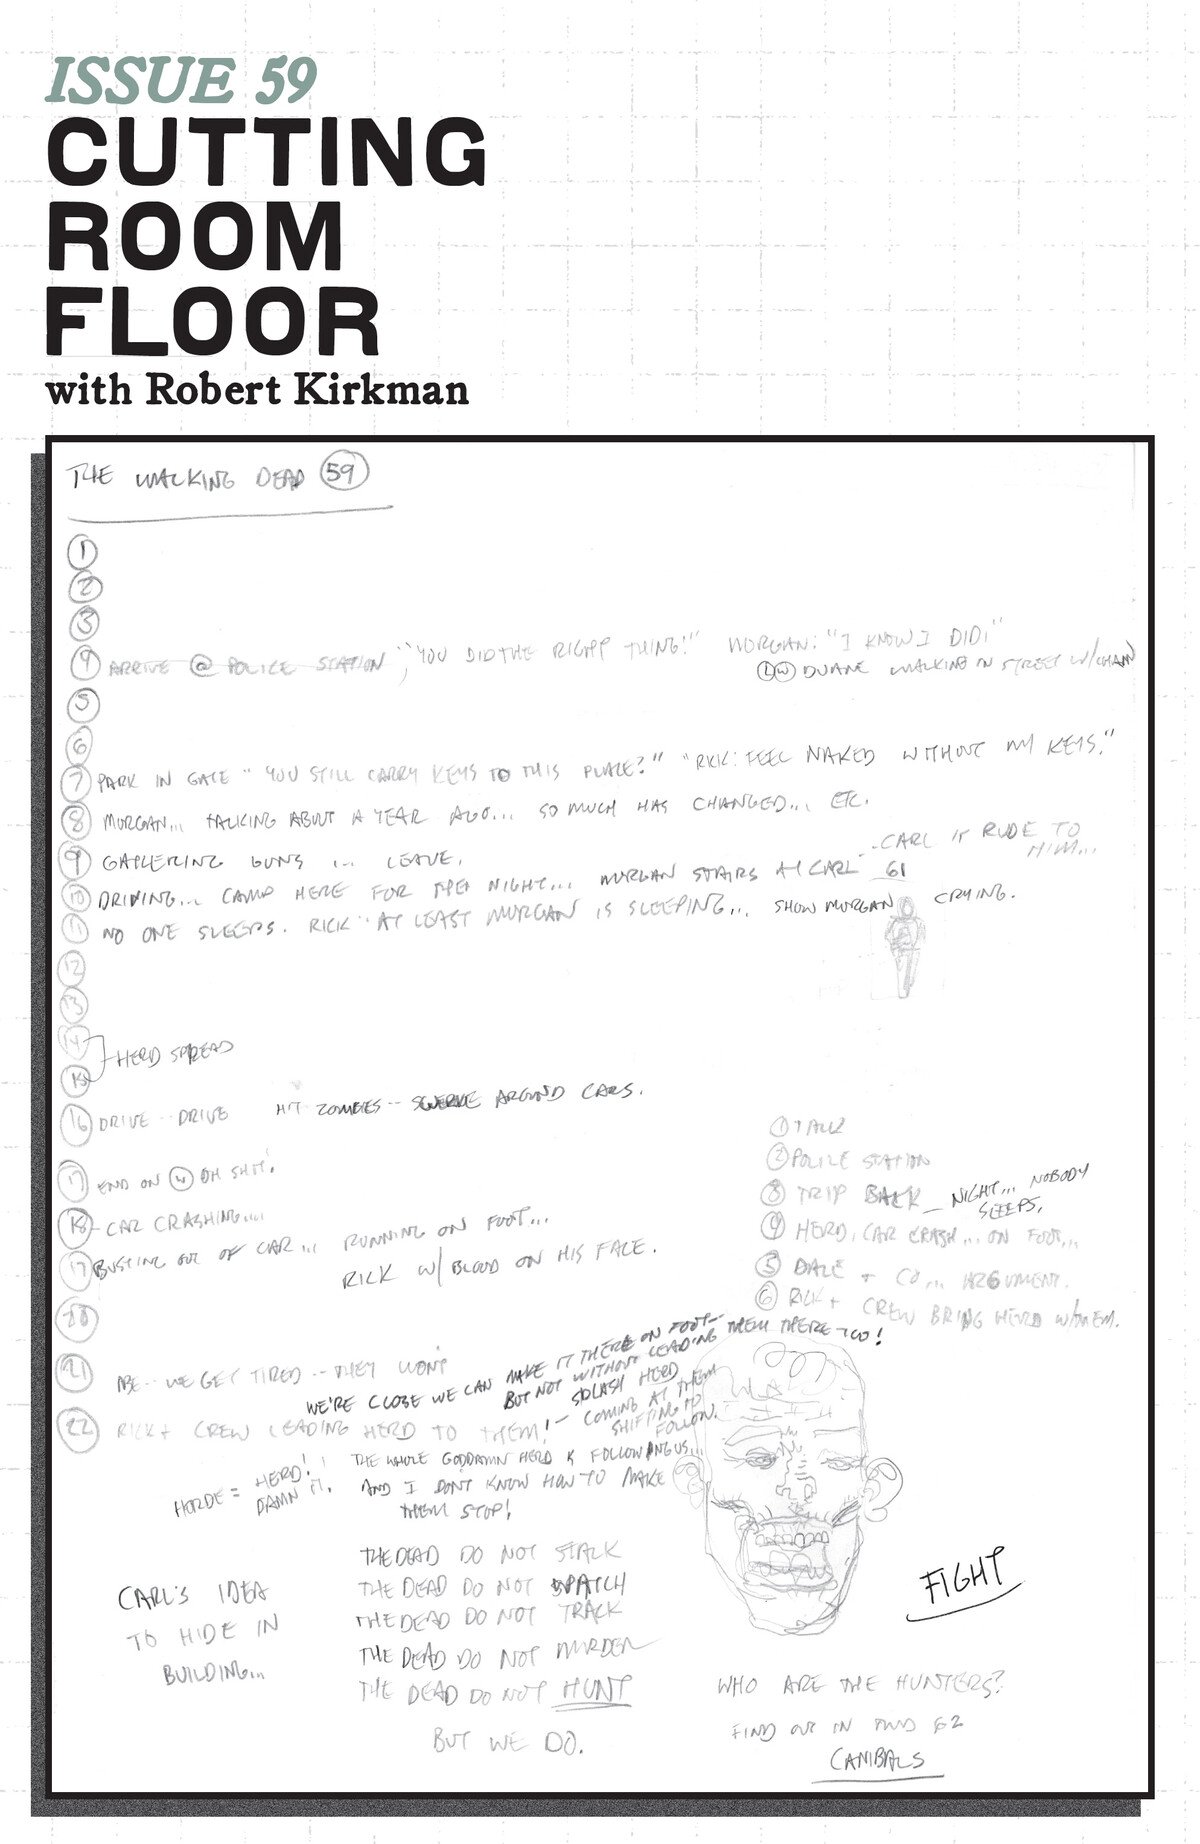 ISSUE 59
CUTTING
ROOM
FLOOR
with Robert Kirkman
THE WALKING DEAD 59
1
2
3
4 ARRIVE @ POLICE STATION "YOU DID THE RIGHT THING!" MORGAN: "I KNOW I DID."
DUANE WALKING IN STREET W/CHAIN
5
6
7 PARK IN GATE "YOU STILL CARRY KEYS TO THIS PLACE?" "RICK: FEEL NAKED WITHOUT MY KEYS."
8 MORGAN... TALKING ABOUT A YEAR AGO... SO MUCH HAS CHANGED... ETC.
9 GATHERING GUNS ... LEAVE.
- CARL IS RUDE TO
HIM...
10 DRIVING... CAMP HERE FOR THE NIGHT... MORGAN STAIRS AT CARL 61
11 NO ONE SLEEPS. RICK "AT LEAST MORGAN IS SLEEPING... SHOW MORGAN CRYING.
12
13
14
HERD SPREAD
15
16 DRIVE -- DRIVE HIT ZOMBIES -- SWERVE AROUND CARS.
17 END ON W OH SHIT!
18 - CAR CRASHING...
19 BUSTING OUT OF CAR... RUNNING ON FOOT...
RICK W/ BLOOD ON HIS FACE.
20
1 TALK
2 POLICE STATION
3 TRIP BACK - NIGHT... NOBODY
SLEEPS.
4 HERD, CAR CRASH... ON FOOT...
5 DALE + CO... ARGUMENT.
6 RICK + CREW BRING HERD W/THEM.
21 ABE -- WE GET TIRED -- THEY WON'T
WE'RE CLOSE WE CAN MAKE IT THERE ON FOOT--
BUT NOT WITHOUT LEADING THEM THERE TOO!
22 RICK + CREW LEADING HERD TO THEM! - SPLASH HERD
COMING AT THEM
SHIFTING TO
FOLLOW.
HORDE = HERD!
DAMN IT.
THE WHOLE GODDAMN HERD IS FOLLOWING US...
AND I DON'T KNOW HOW TO MAKE
THEM STOP!
CARL'S IDEA
TO HIDE IN
BUILDING...
THE DEAD DO NOT STALK
THE DEAD DO NOT WATCH
THE DEAD DO NOT TRACK
THE DEAD DO NOT MURDER
THE DEAD DO NOT HUNT
BUT WE DO.
FIGHT
WHO ARE THE HUNTERS?
FIND OUT IN TWD 62
CANIBALS